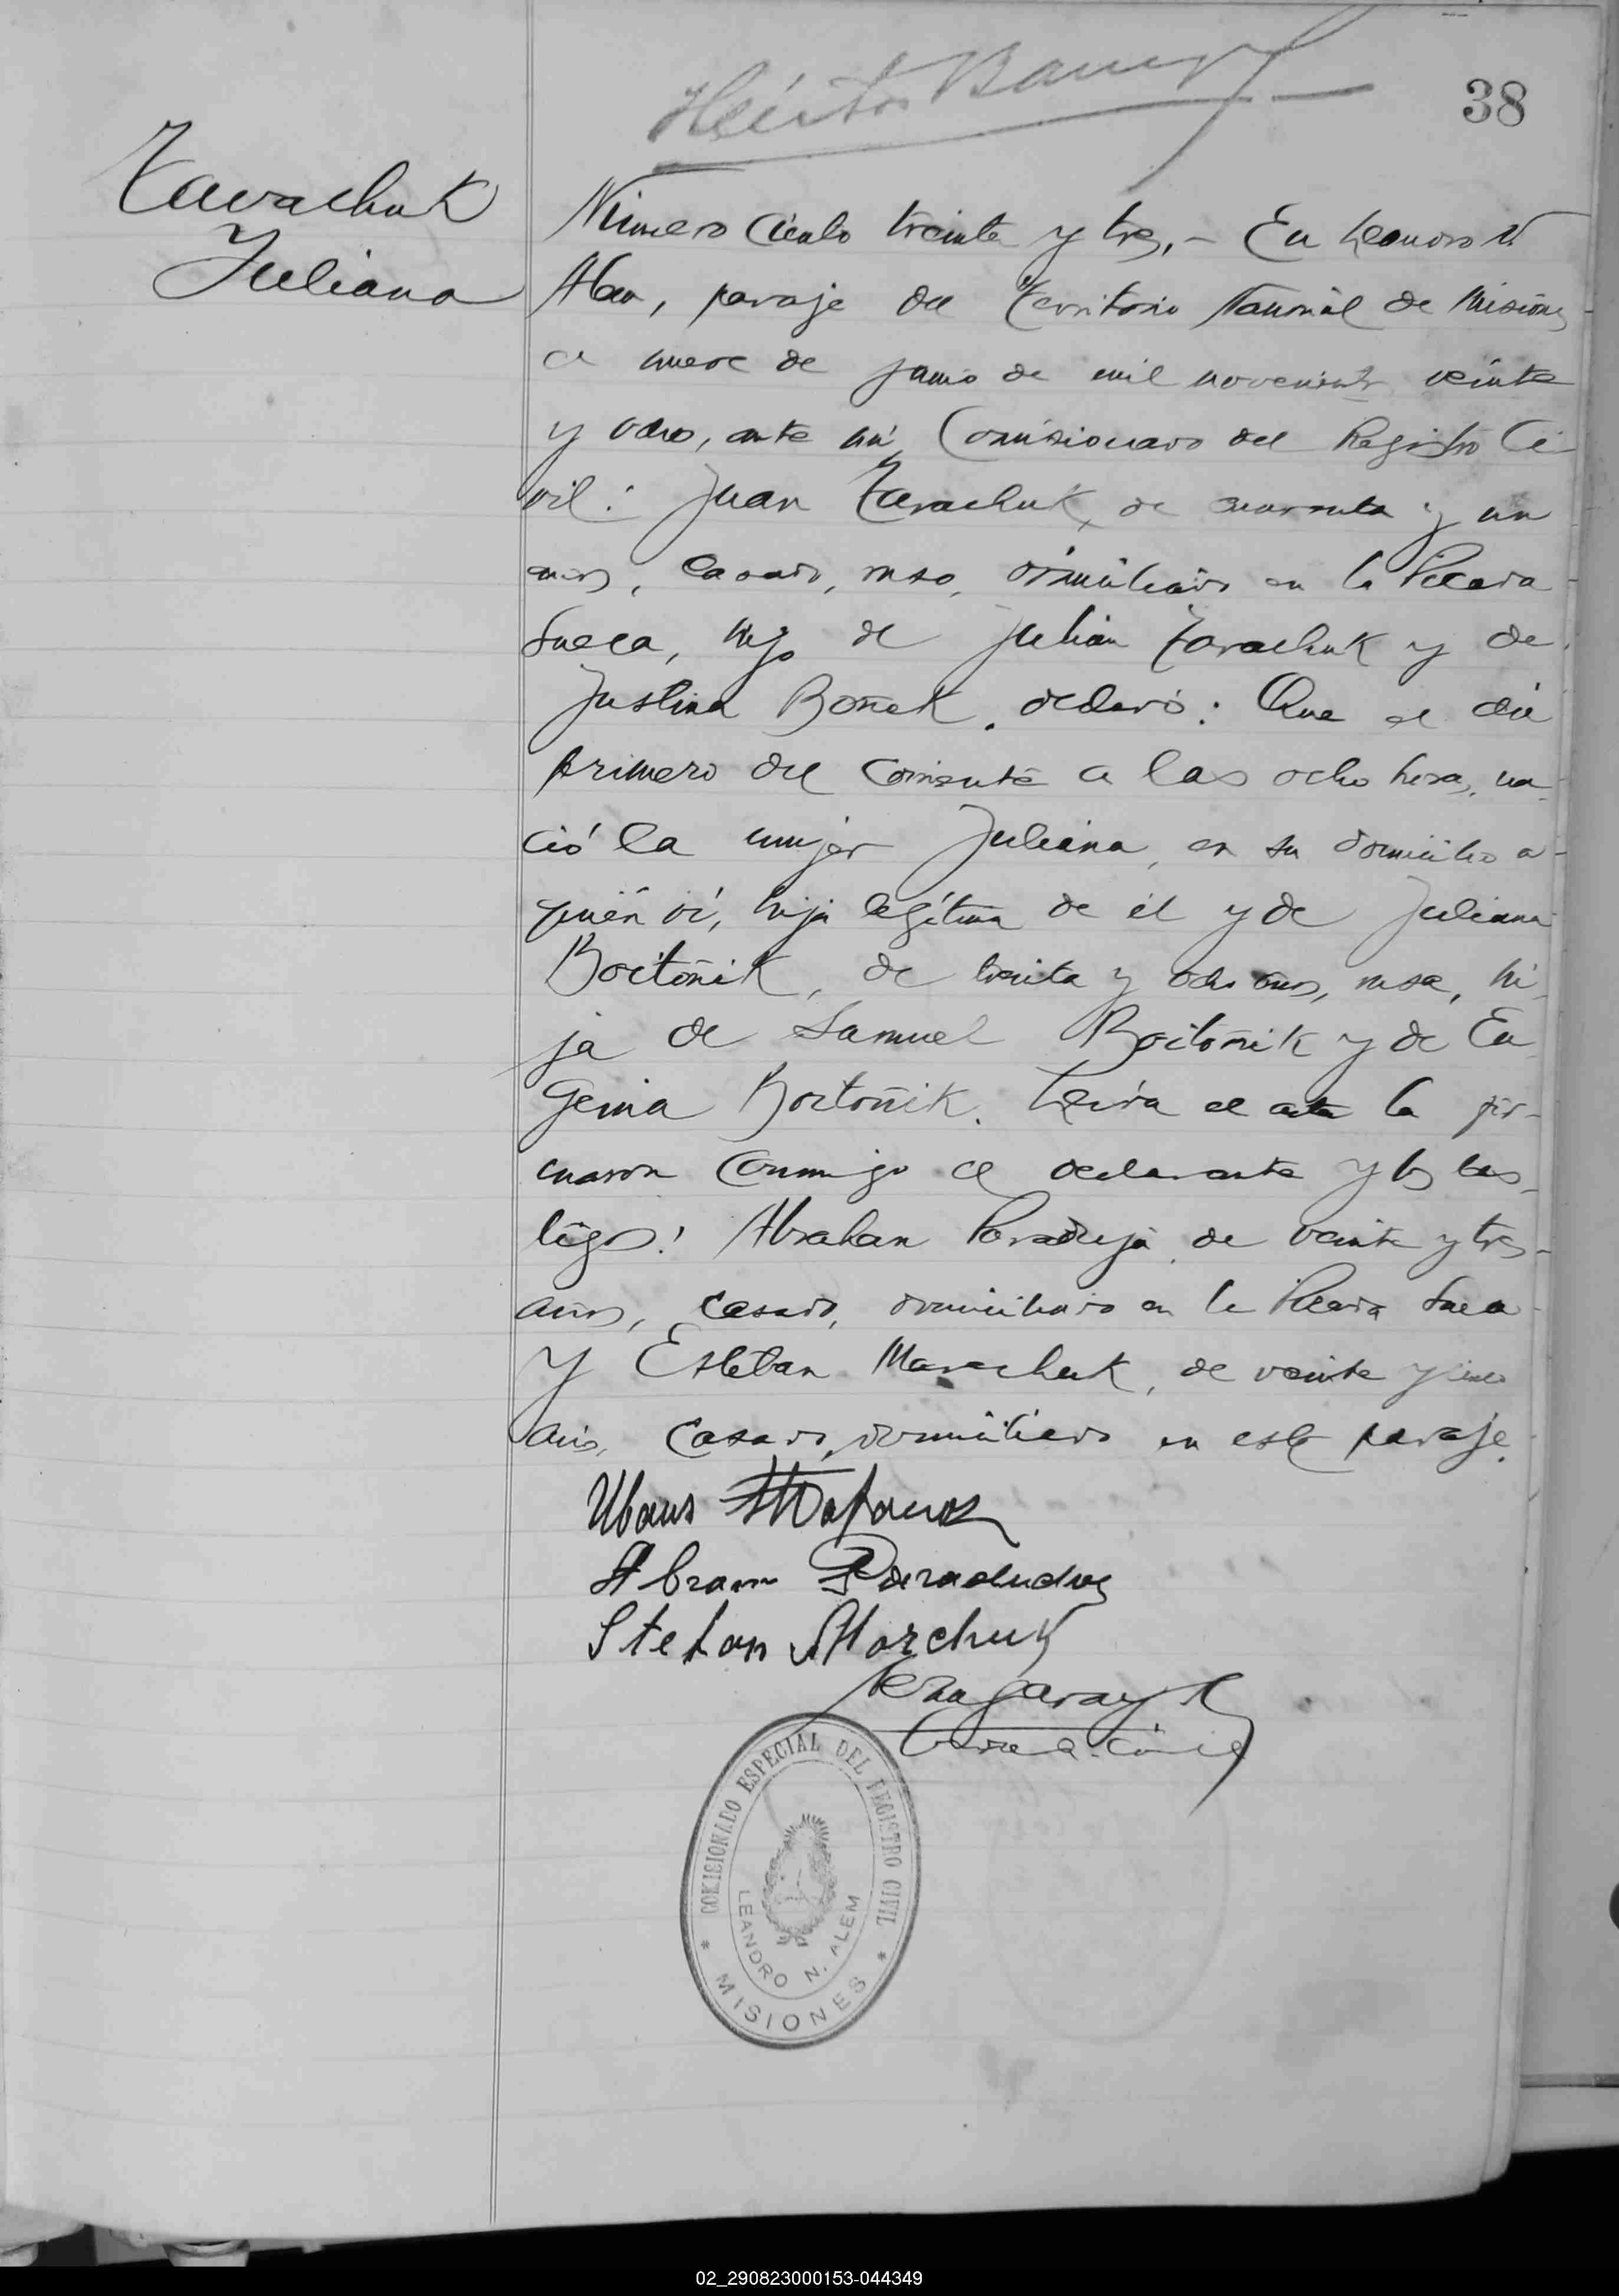 38
Zavachuk
Juliana
Número ciento treinta y tres.- En Leandro N
Alem, paraje del Territorio Nacional de Misiones
a nueve de junio de mil novecientos veinte
y ocho, ante mí, Comisionado del Registro Ci-
vil: Juan Zavachuk, de cuarenta y un
años, casado, ruso, domiciliado en la Picada
Sueca, hijo de Julian Zavachuk y de
Justina Boñek, declaró: Que el día
primero del corriente a las ocho horas, na-
ció la mujer Juliana, en su domicilio a
quién ví, hija legítima de él y de Juliana
Boitoñik, de treinta y ocho años, rusa, hi-
ja de Samuel Boitoñik y de Eu
genia Boitoñik. Leída el acta la fir-
maron conmigo el declarante y los tes-
tigos: Abrahan Paraduja de veinte y tres
años, casado, domiciliado en la Picada Sueca
y Esteban Marachuk, de veinte y cinco
años, casado, domiciliado en este paraje.
Abram
Stefan Marchuk
COMISIONADO ESPECIAL DEL REGISTRO CIVIL
LEANDRO N. ALEM
* MISIONES *
02_290823000153-044349